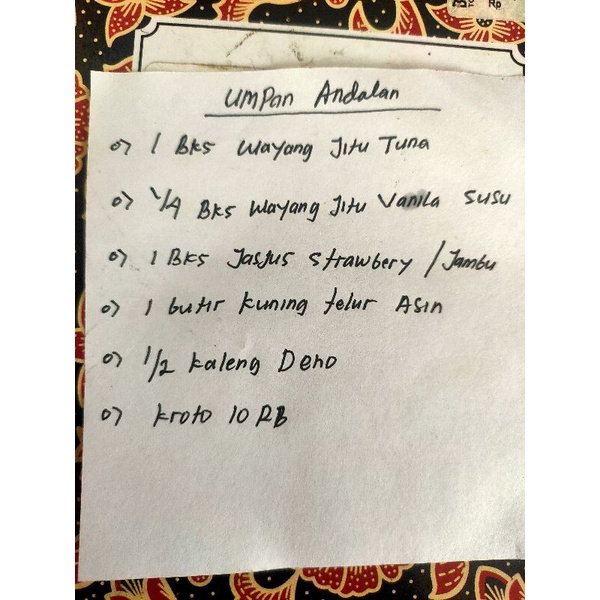 Rp
UMPan Andalan
o> 1 Bks Wayang Jitu Tuna
o> 1/4 Bks Wayang Jitu Vanila Susu
o> 1 Bks Jasjus Strawbery / Jambu
o> 1 butir kuning telur Asin
o> 1/2 kaleng Deho
o> kroto 10 RB